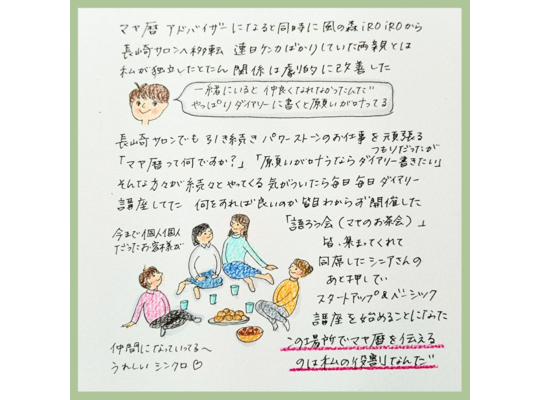 マヤ暦 アドバイザーになると同時に 風の森iROiROから
長崎サロンへ移転 連日ケンカばかりしていた両親とは
私が独立したとたん 関係は劇的に改善した
一緒にいると 仲良くなれなかったんだ
やっぱり ダイアリーに書くと願いが叶ってる
長崎サロンでも 引き続き パワーストーンのお仕事を頑張る
つもりだったが
「マヤ暦って何ですか?」「願いが叶うなら ダイアリー書きたい」
そんな方々が続々とやってくる 気がついたら毎日毎日 ダイアリー
講座してた 何をすれば良いのか 皆目わからず開催した
「語ろう会(マヤのお茶会)」
今まで個人個人
だったお客様が
皆、集まってくれて
同席したシニアさんの
あと押しでい
スタートアップ&ベーシック
講座を始めることになった
この場所でマヤ暦を伝える
のは私の役割なんだ
仲間になっていってる〜
うれしい シンクロ♡